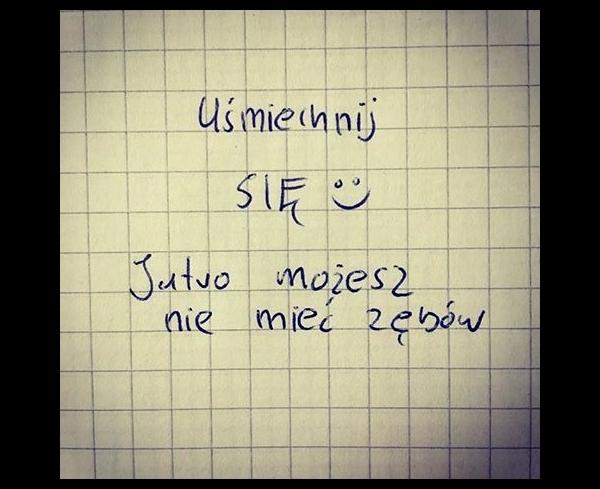 Uśmiechnij
SIĘ :)
Jutro możesz
nie mieć zębów